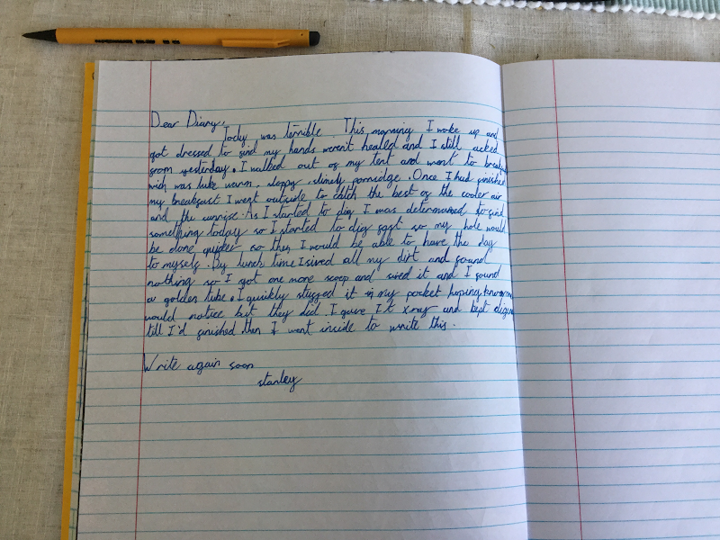 Dear Diary,
Tody was terrible. This morning I woke up and
got dressed to find my hands weren't heald and I still acked
from yesterday. I walked out of my tent and went to break
wich was luke warm, sloppy, slimely porridge. Once I had finished
my breakfast I went outside to catch the best of the cooler air
and the sunrise. As I started to dig I was determained to find
something today so I started to dig fast so my hole would
be done quicker so then I would be able to have the day
to myself. By lunch time I sived all my dirt and found
nothing so I got one more scoop and sived it and I found
a golden tube. I quickly stuffed it in my pocket hoping
would notice but they did. I gave it xray and kept
till I'd finished then I went inside to write this.
Write again soon
stanley